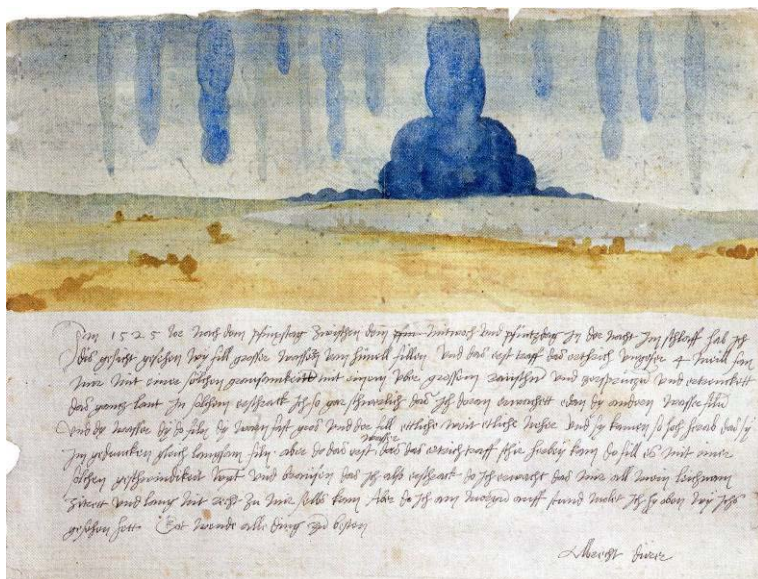 Im 1525 Jor nach dem pfinxstag zwischen dem Mitwoch und pfintzdag in der nacht im schlaff hab ich
dis gesicht gesehen wy fill grosser wassern vom himell fillen Und das erst traff das erthrich ungefer 4 meill fan
mir mit einer solchen grausamkeitt mit einem uber grossem raüschn und zersprützn und ertrenckett
das gantz lant In solchem erschrack ich so gar schwerlich das ich doran erwachett edan dy andern wasser filn
Und dy wasser dy do filn dy warn fast gros und der fill ettliche weit etliche neher und sy kamen so hoch herab das sy
im gedancken gleich langsam filn. aber do das erst wasser das das ertrich traff schir herbey kam do fill es mit einer
solchen geschwindikeit wynt und braüsen das ich also erschrack do ich erwacht das mir all mein leichnam
zitrett und lang nit recht zu mir selbs kam Aber do ich am morgen auff stund molet ich hy oben wy ichs
gesehen hett. Got wende alle ding zu besten
Albrecht dürer